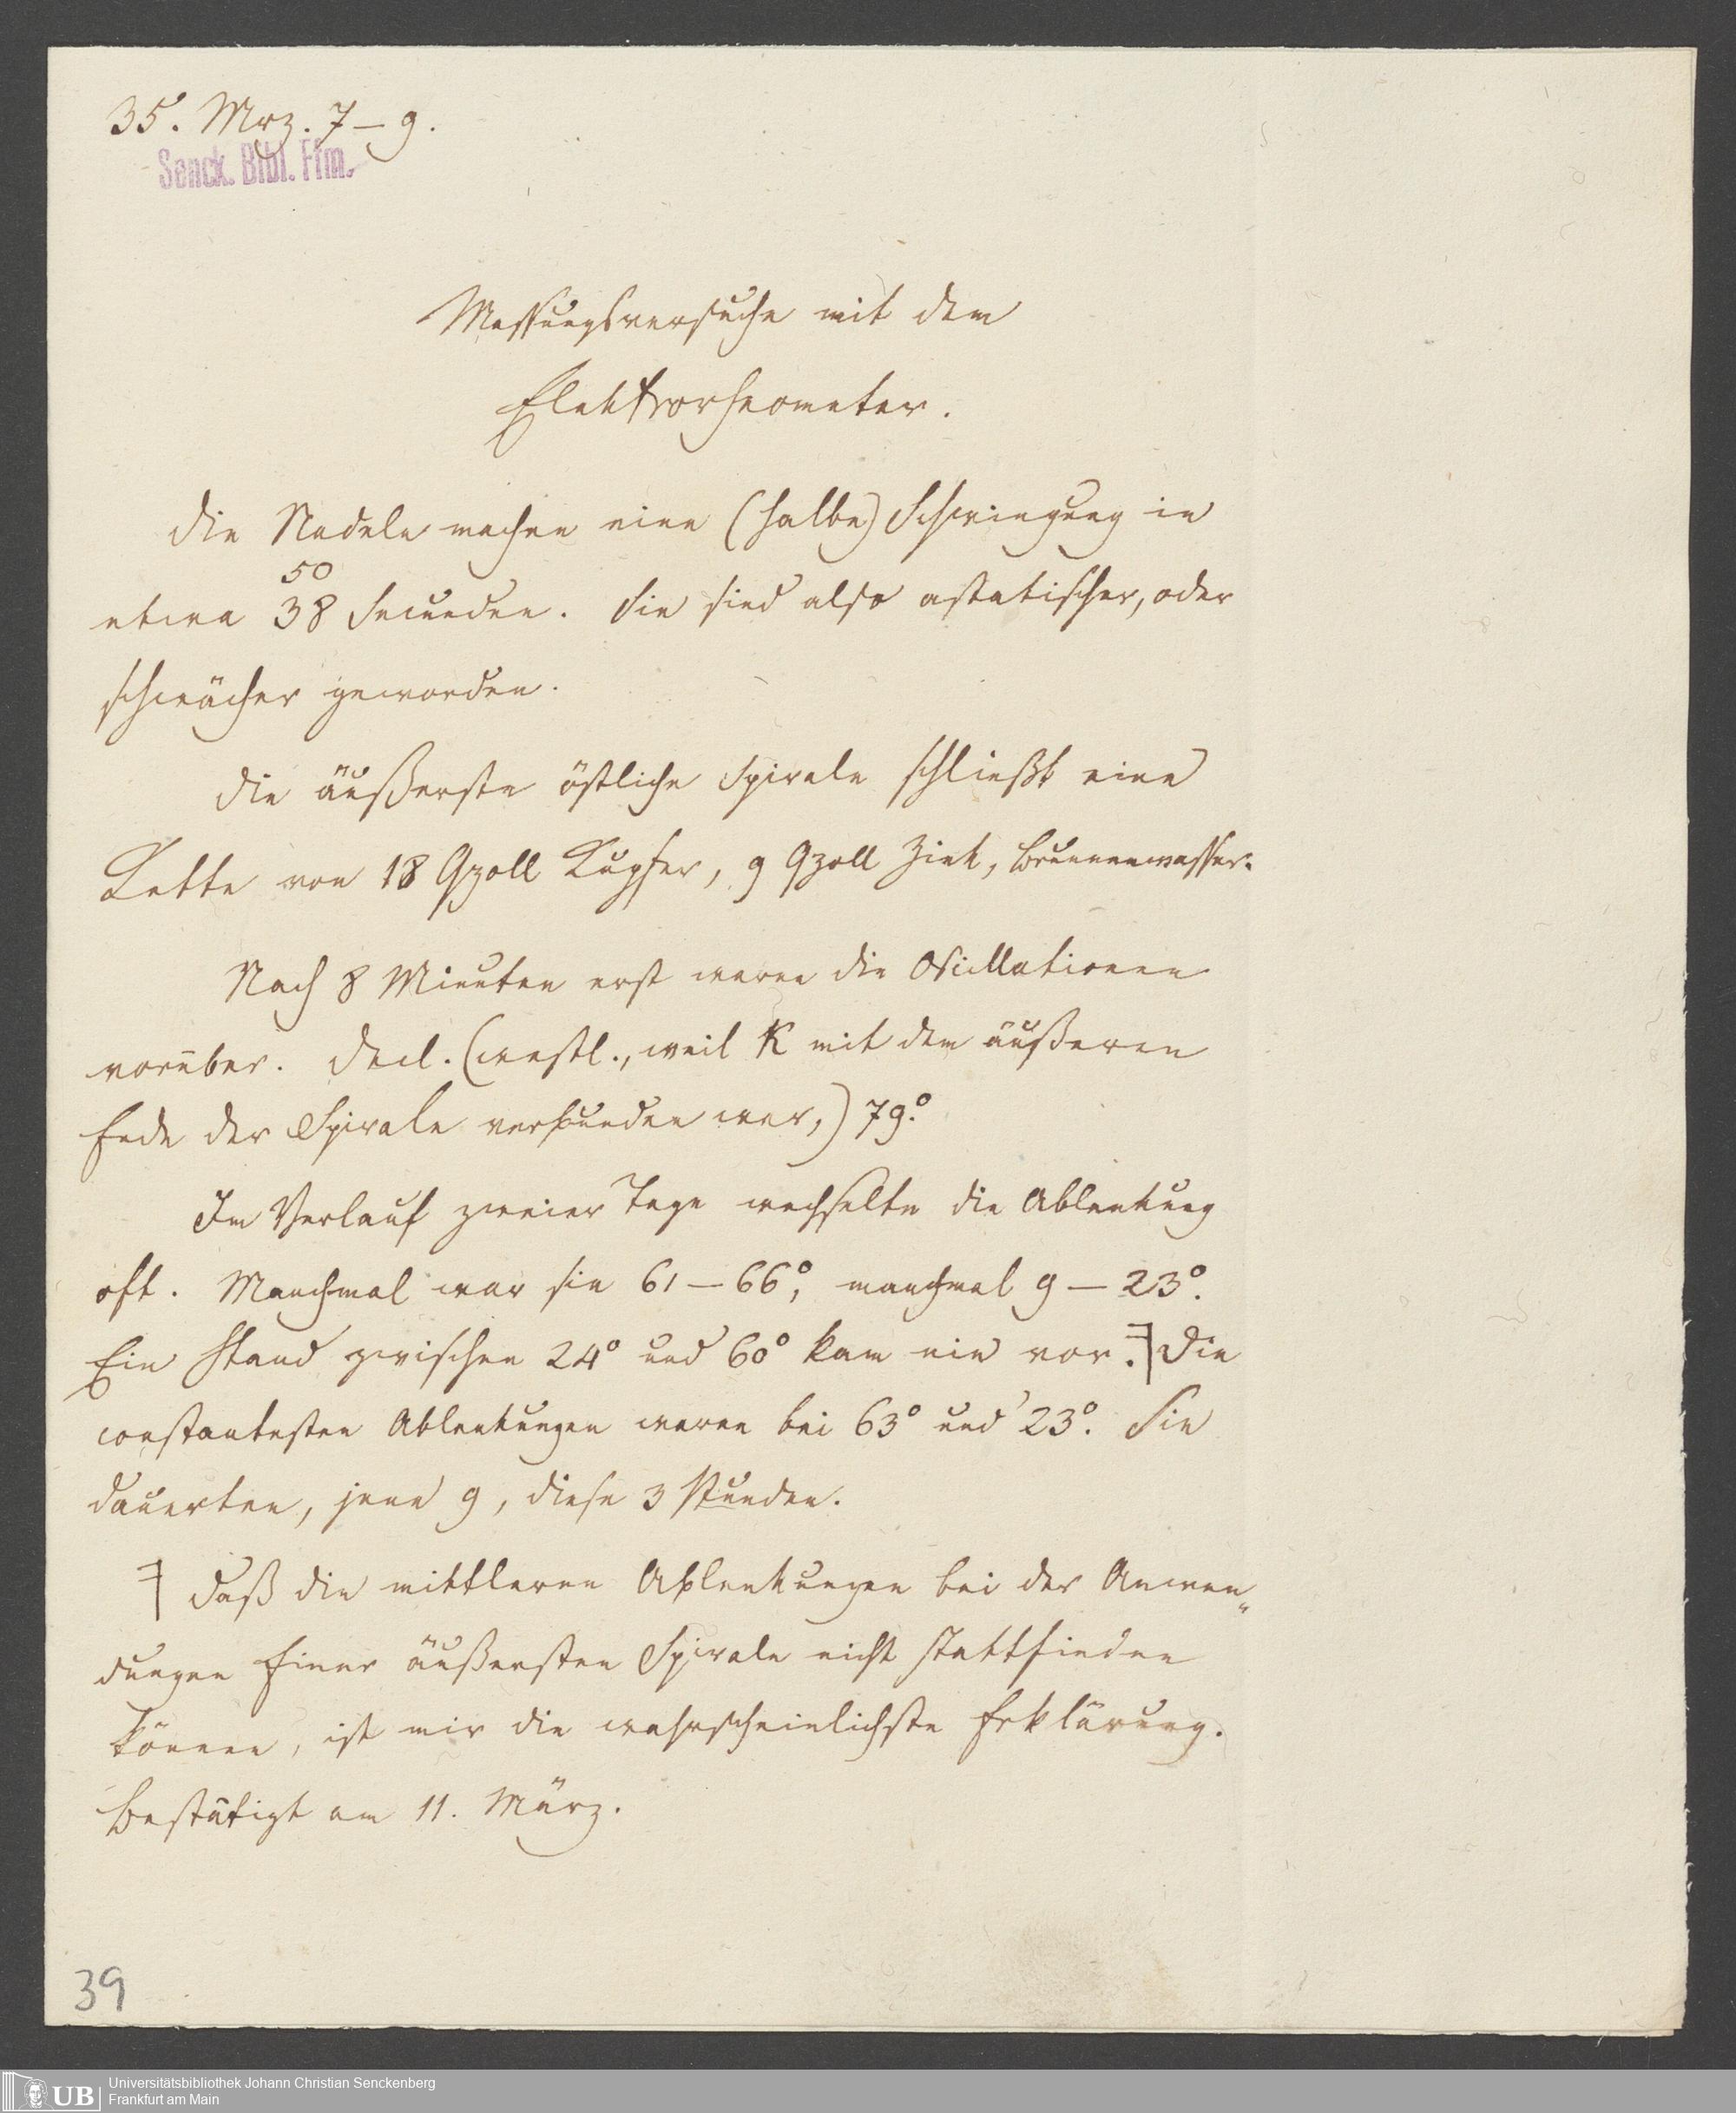 35. Mrz. 7–9.
Senck. Bibl. Ffm.
Messungsversuche mit dem
Elektrorheometer.
Die Nadeln machen eine (halbe) Schwingung in
50
etwa 38 Secunden. Sie sind also astatischer, oder
schwächer geworden.
Die äußerste östliche Spirale schließt eine
Kette von 18 Qzoll Kupfer, 9 Qzoll Zink, Brunnenwasser.
Nach 8 Minuten erst waren die Oscillationen
vorüber. Decl. (westl., weil K mit dem äußeren
Ende der Spirale verbunden war,) 79.°
Im Verlauf zweier Tage wechselte die Ablenkung
oft. Manchmal war sie 61–66°, manchmal 9–23°.
Ein Stand zwischen 24° und 60° kam nie vor. Die
constantesten Ablenkungen waren bei 63° und 23°. Sie
dauerten, jene 9, diese 3 Stunden.
Daß die mittleren Ablenkungen bei der Anwen„
dungen Einer äußersten Spirale nicht stattfinden
können, ist mir die wahrscheinlichste Erklärung.
Bestätigt am 11. März.
39
UB
Universitätsbibliothek Johann Christian Senckenberg
Frankfurt am Main